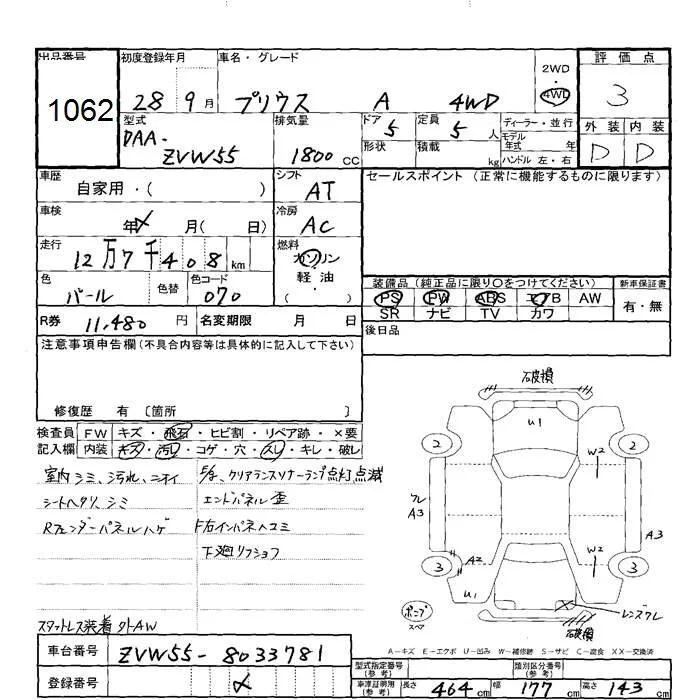 出品番号
1062
初度登録年月
28 9月
車名・グレード
プリウス A 4WD
2WD
4WD
評価点
3
外装 内装
D D
型式
DAA-
ZVW55
排気量
1800 CC
ドア
5
形状
定員
5人
積載
kg
ディーラー・並行
モデル年式 年
ハンドル 左・右
車歴
自家用・( )
シフト
AT
セールスポイント (正常に機能するものに限ります)
車検
年 月( 日)
冷房
AC
走行
12万7千408km
燃料
ガソリン
軽油
・
色
パール
色替
色コード
070
装備品 (純正品に限り○をつけてください)
PS PW ABS エアB AW
SR ナビ TV カワ
新車保証書
有・無
R券 11,480円
名変期限 月 日
後日品
注意事項申告欄(不具合内容等は具体的に記入して下さい)
修復歴 有〔箇所 〕
検査員記入欄
FW キズ・飛石・ヒビ割・リペア跡・×要
内装 キズ・汚レ・コゲ・穴・スレ・キレ・破レ
室内シミ、汚れ、ニオイ
シートヘタリ、シミ
Rフェンダーパネルハゲ
クリアランスソナーランプ点灯点滅
エンドパネル歪
F右インパネヘコミ
下廻リフショク
スタットレス装着 外AW
石破損
U1
2
2
W2
フレ
A3
A3
A2
W2
3
3
U1
X
レンズワレ
石破損
スペア
A-キズ E-エクボ U-凹み W-補修跡 S-サビ C-腐食 XX-交換済
車台番号
ZVW55-8033781
登録番号
型式指定番号(参考)
類別区分番号(参考)
車庫証明用(参考)
長さ 464cm 幅 177cm 高さ 143cm